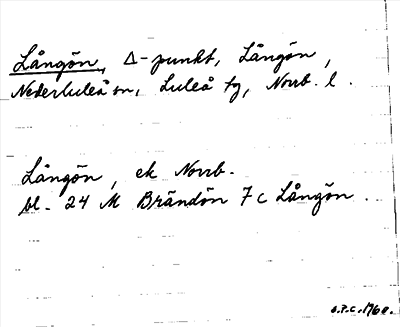 Långön, Δ-punkt, Långön,
Nederluleå sn, Luleå tg, Norrb. l.
Långön, ek Norrb.
bl. 24 M Brändön 7 c Långön.
O.P.C. 1968.